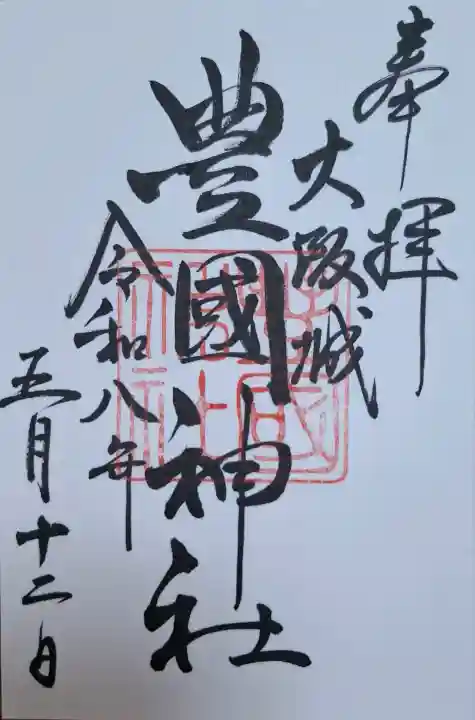 奉拝
大阪城
豊國神社
令和八年
五月十二日
豊國神社